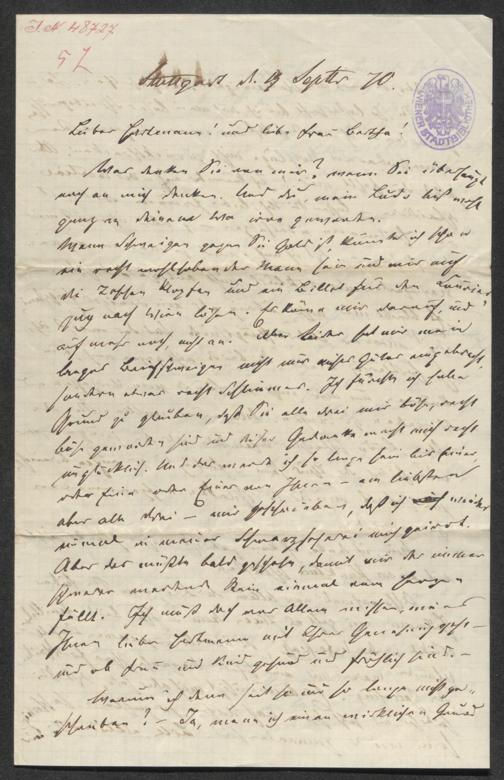 I.N. 48727
57
Stuttgart d. 13 Septbr 70.
WIENER STADTBIBLIOTHEK
Lieber Hartmann! und liebe Frau Bertha!
Was denken Sie von mir? wenn Sie überhaupt
noch an mich denken. Und du mein Ludo bist wohl
ganz an deinem geworden.
Wenn Schweigen gegen Sie Gold ist, könnte ich schon
ein recht wohlhabender Mann sein und mir auf
die Taschen klopfen und ein Billet für den Courier
zug nach Wien lösen. Es käme mir darauf, und
auf mehr noch nicht an. Aber leider hat mir mein
langes Beischweigen nicht nur nichts Gutes eingebracht,
sondern etwas recht Schlimmes. Ich fürchte ich habe
Grund zu glauben, daß Sie alle drei mir böse, recht
böse geworden sind und dieser Gedanke macht mich recht
unglücklich. Und das werde ich so lange sein bis Einer
oder Eine oder Eines von Ihnen – am liebsten
aber alle drei – mir geschrieben, daß ich wieder
einmal in meiner Schwarzseherei mich geirrt.
Aber das müßte bald geschehn, damit mir der immer
werdende Stein einmal vom Herzen
fällt. Ich muß doch vor Allem wissen, wie es
Ihnen lieber Hartmann mit Ihrer Genesung geht –
und ob Frau und Kind gesund und fröhlich sind. –
Warum ich denn seit so und so lange nicht ge-
schrieben? – Ja, wenn ich einen wirklichen Grund